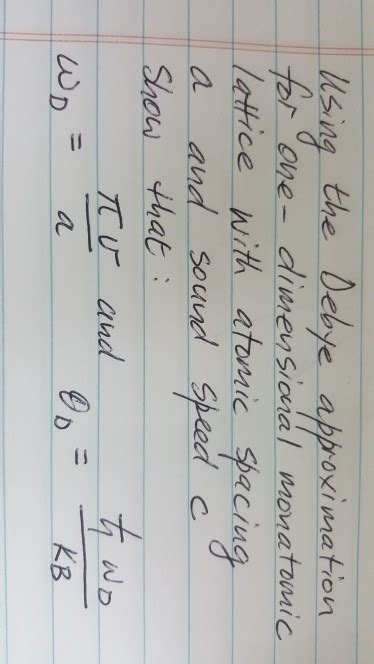 Using the Debye approximation
for one-dimensional monatomic
lattice with atomic spacing
a and sound speed c
Show that:
ω_D = πv/a and θ_D = ħω_D/K_B